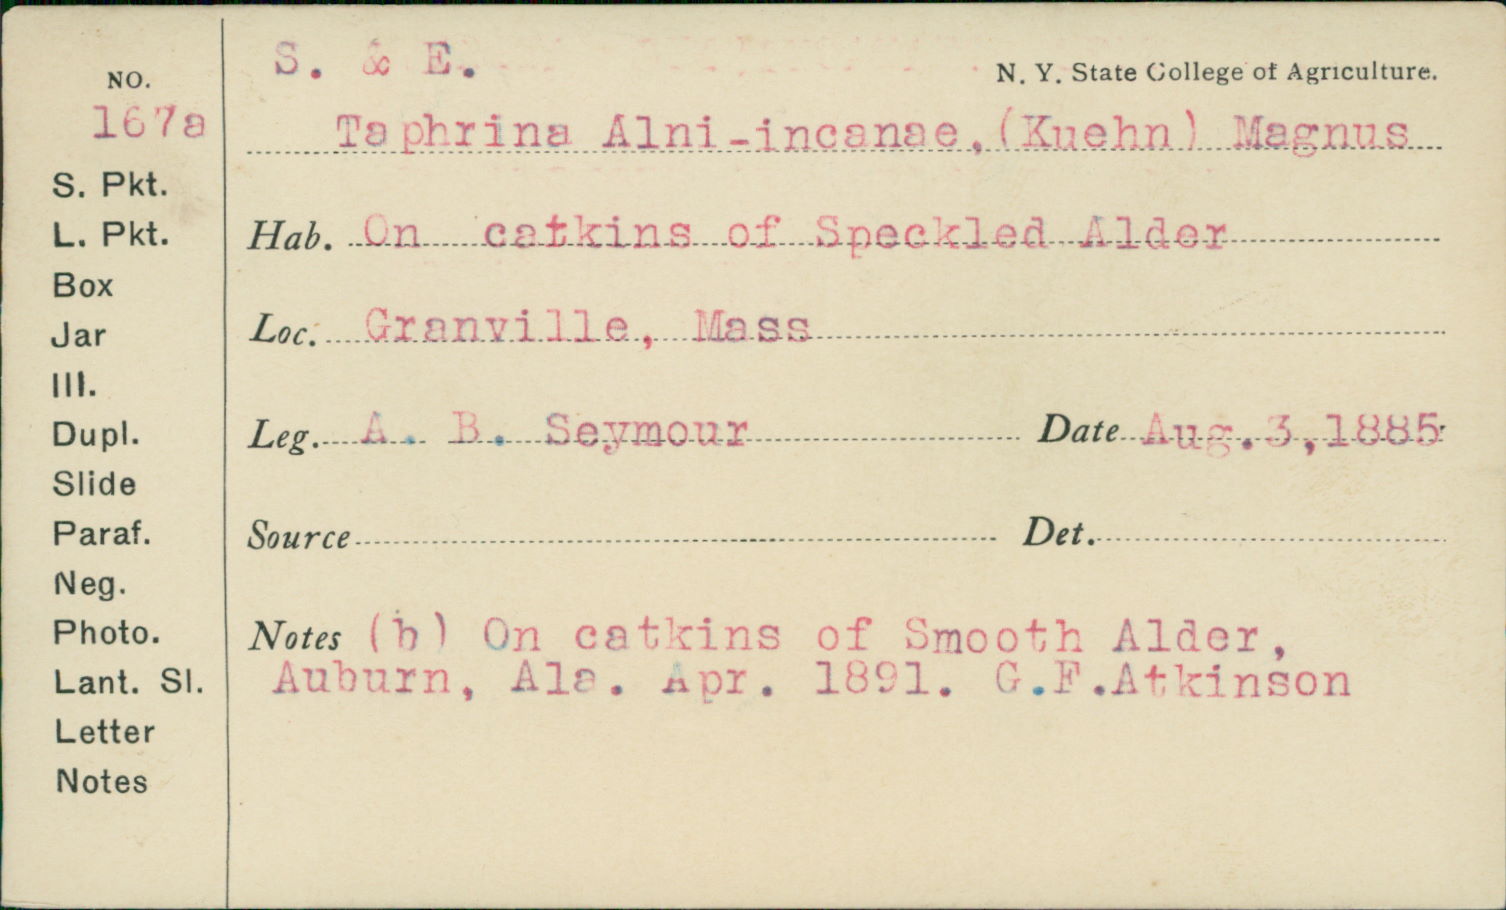 S. & E.
N. Y. State College of Agriculture.
NO.
167a
Taphrina Alni-incanae,(Kuehn) Magnus
S. Pkt.
L. Pkt.
Hab. On catkins of Speckled Alder
Box
Jar
Loc. Granville, Mass
Ill.
Dupl.
Leg. A. B. Seymour Date Aug.3,1885
Slide
Paraf.
Source Det.
Neg.
Photo.
Notes (b) On catkins of Smooth Alder,
Lant. Sl.
Auburn, Ala. Apr. 1891. G.F.Atkinson
Letter
Notes